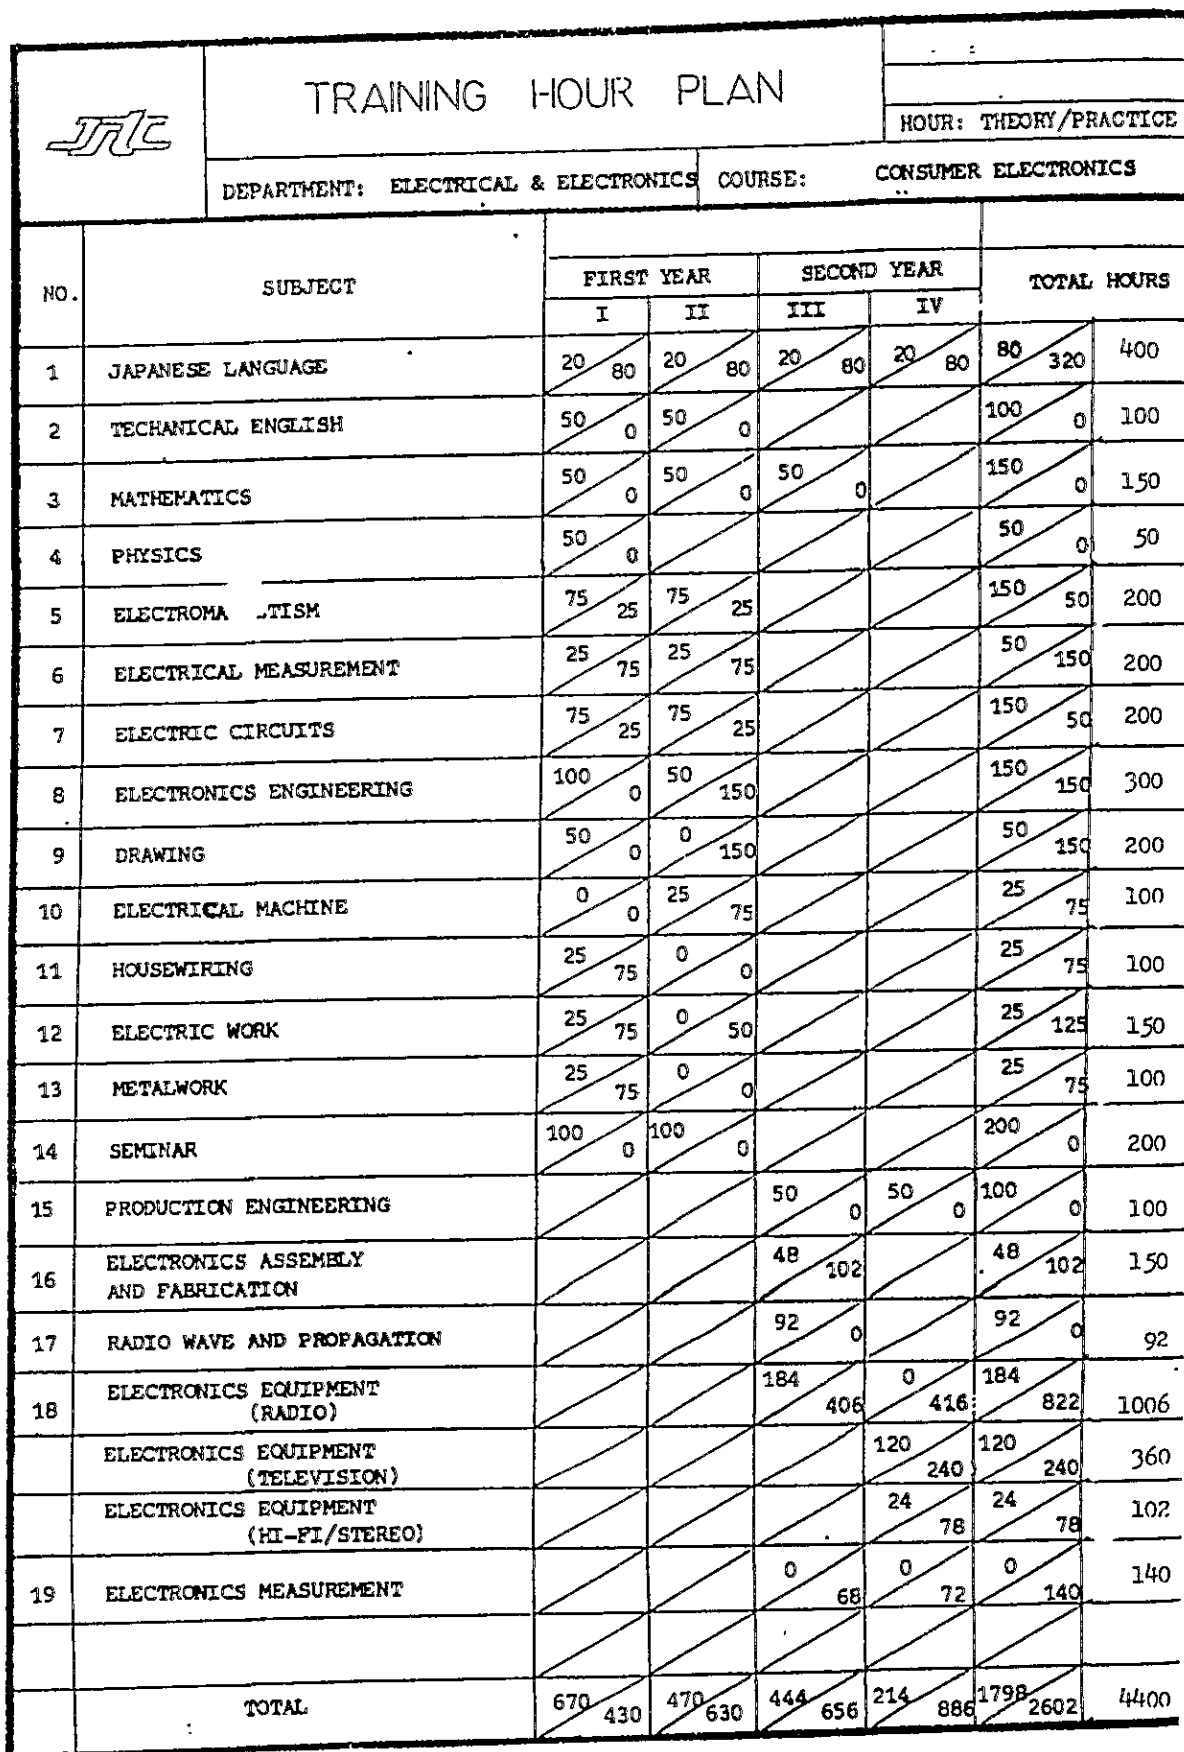 TRAINING HOUR PLAN
HOUR: THEORY/PRACTICE
DEPARTMENT: ELECTRICAL & ELECTRONICS COURSE: CONSUMER ELECTRONICS
NO. SUBJECT FIRST YEAR SECOND YEAR TOTAL HOURS
I II III IV
1 JAPANESE LANGUAGE 20 80 20 80 20 80 20 80 80 320 400
2 TECHANICAL ENGLISH 50 0 50 0 100 0 100
3 MATHEMATICS 50 0 50 0 50 0 150 0 150
4 PHYSICS 50 0 50 0 50
5 ELECTROMA TISM 75 25 75 25 150 50 200
6 ELECTRICAL MEASUREMENT 25 75 25 75 50 150 200
7 ELECTRIC CIRCUITS 75 25 75 25 150 50 200
8 ELECTRONICS ENGINEERING 100 0 50 150 150 150 300
9 DRAWING 50 0 0 150 50 150 200
10 ELECTRICAL MACHINE 0 0 25 75 25 75 100
11 HOUSEWIRING 25 75 0 0 25 75 100
12 ELECTRIC WORK 25 75 0 50 25 125 150
13 METALWORK 25 75 0 0 25 75 100
14 SEMINAR 100 0 100 0 200 0 200
15 PRODUCTION ENGINEERING 50 0 50 0 100 0 100
16 ELECTRONICS ASSEMBLY
AND FABRICATION 48 102 48 102 150
17 RADIO WAVE AND PROPAGATION 92 0 92 0 92
18 ELECTRONICS EQUIPMENT
(RADIO) 184 406 0 416 184 822 1006
ELECTRONICS EQUIPMENT
(TELEVISION) 120 240 120 240 360
ELECTRONICS EQUIPMENT
(HI-FI/STEREO) 24 78 24 78 102
19 ELECTRONICS MEASUREMENT 0 68 0 72 0 140 140
TOTAL 670 430 470 630 444 656 214 886 1798 2602 4400